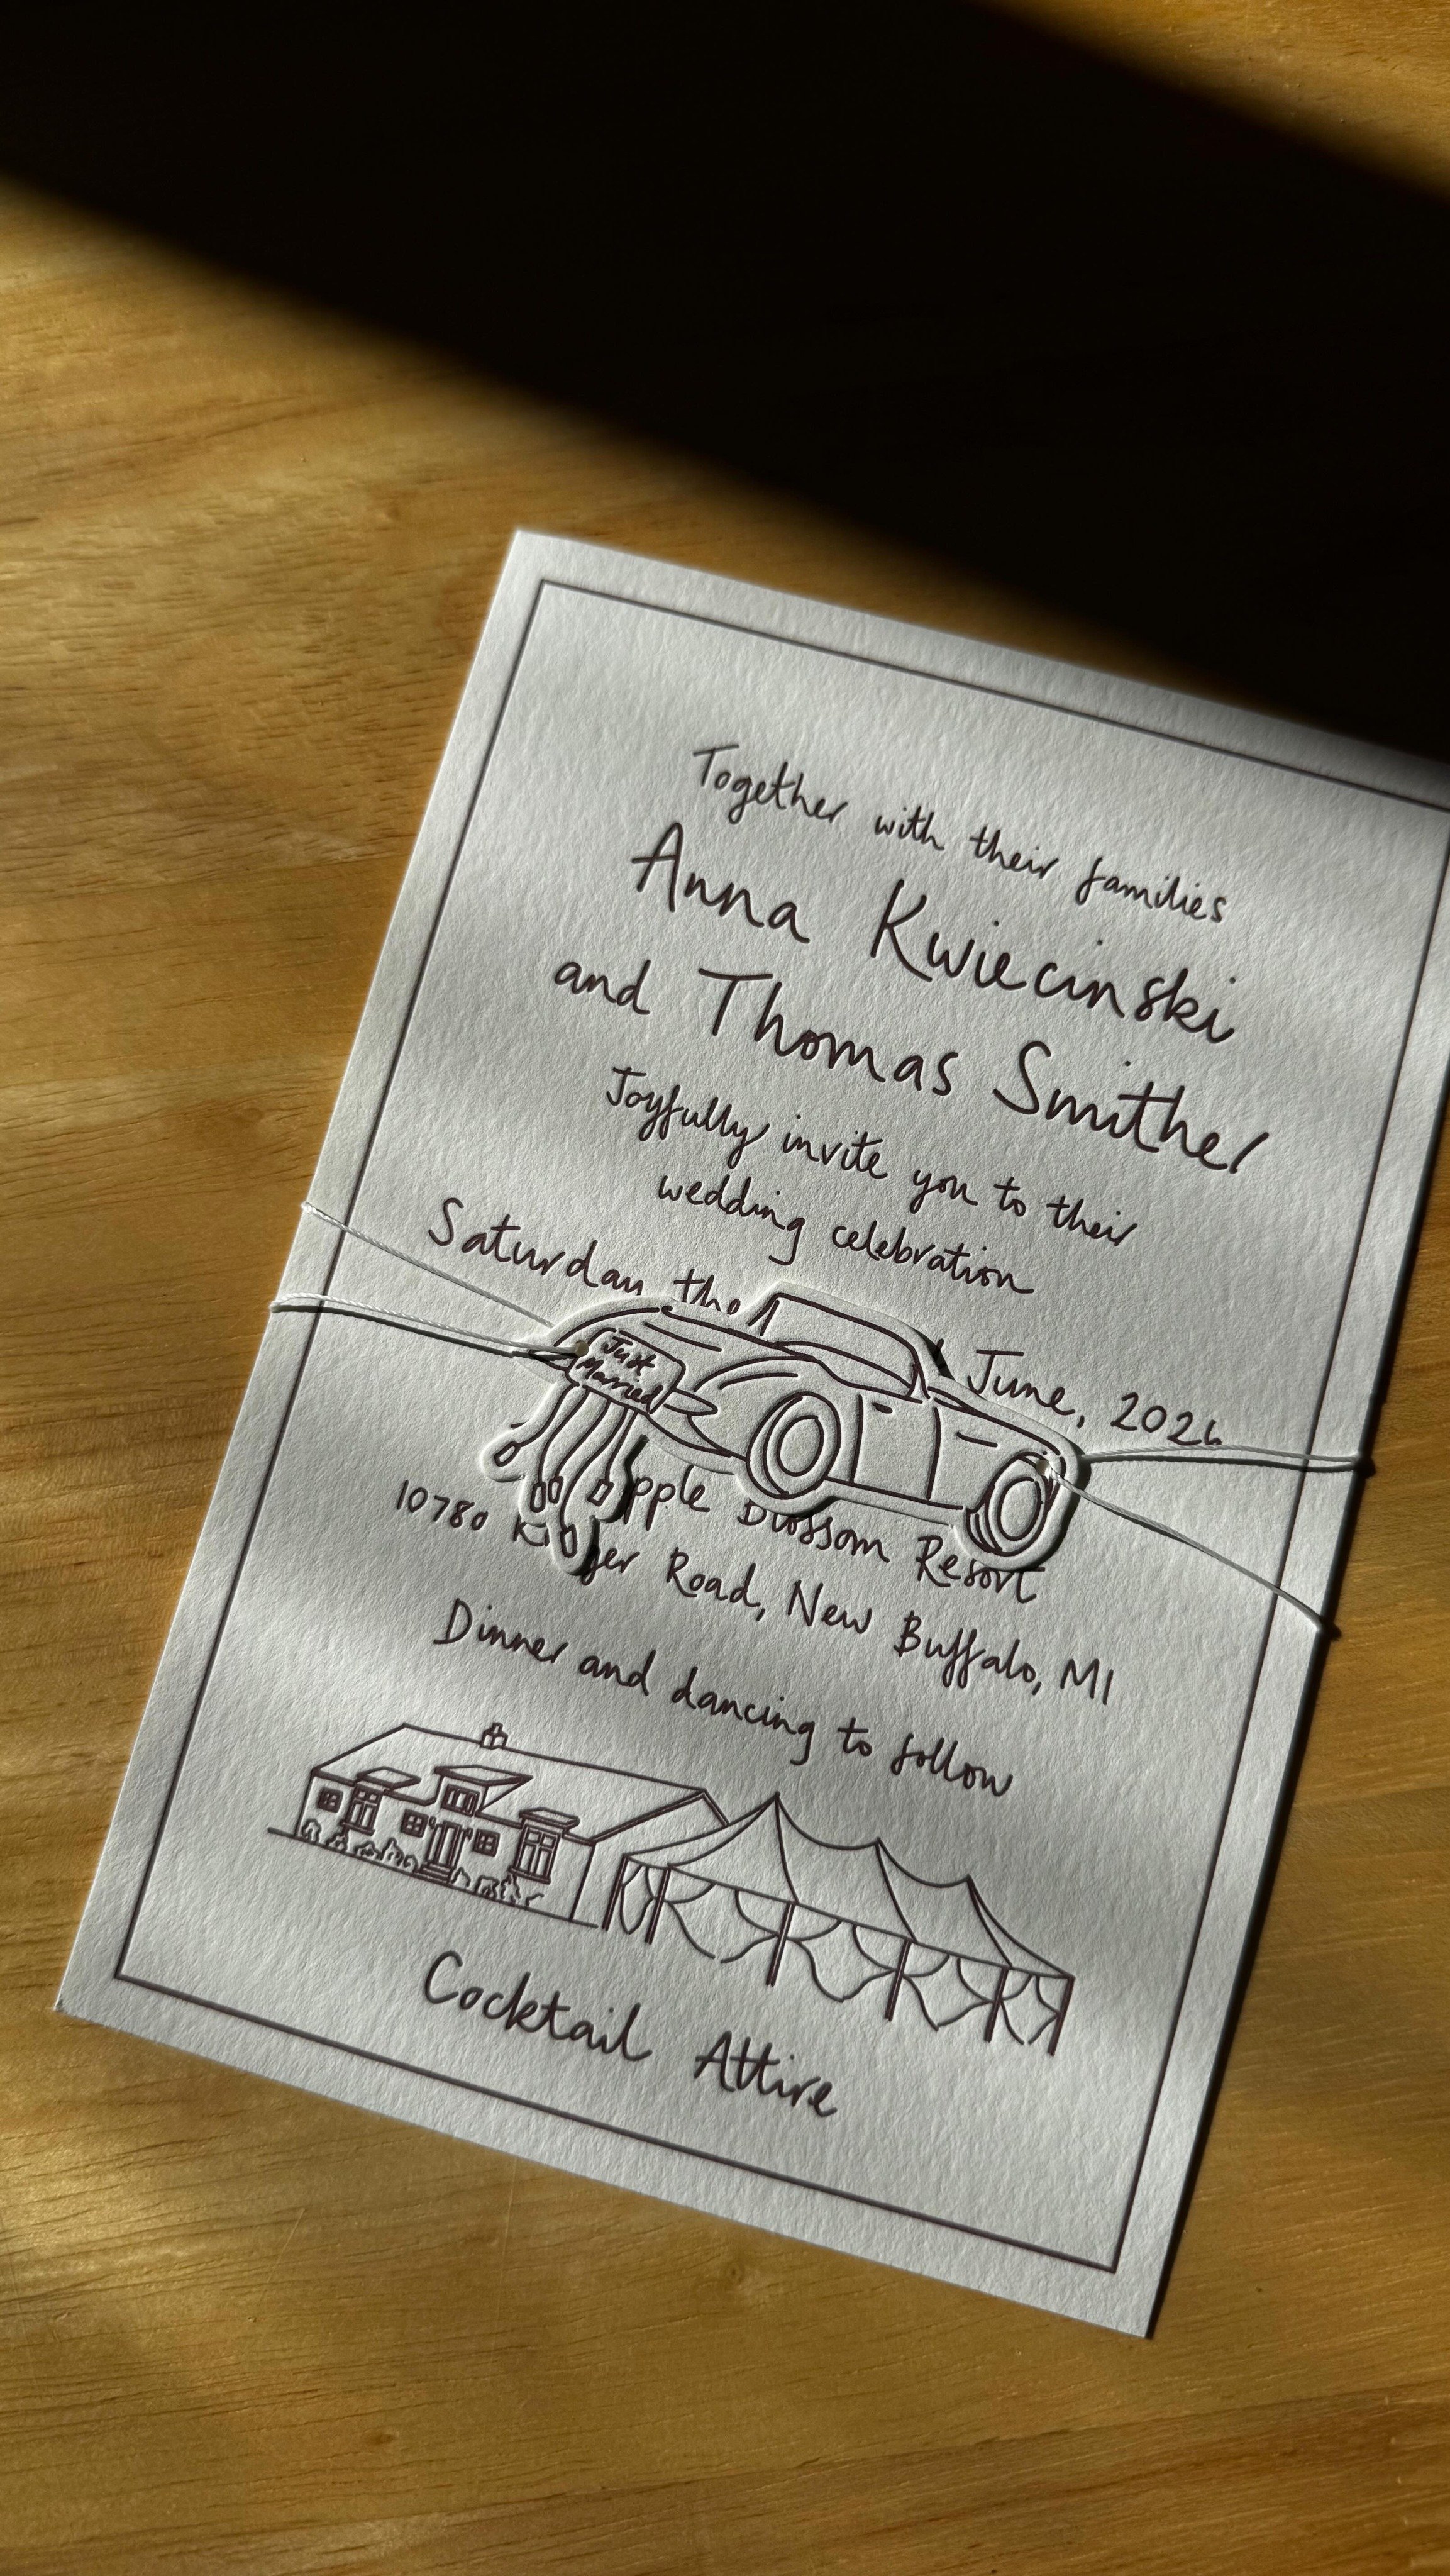 Together with their families
Anna Kwiecinski
and Thomas Smither
Joyfully invite you to their
wedding celebration
Saturday the June, 2026
Just
Married
Apple Blossom Resort
10780 Road, New Buffalo, MI
Dinner and dancing to follow
Cocktail Attire